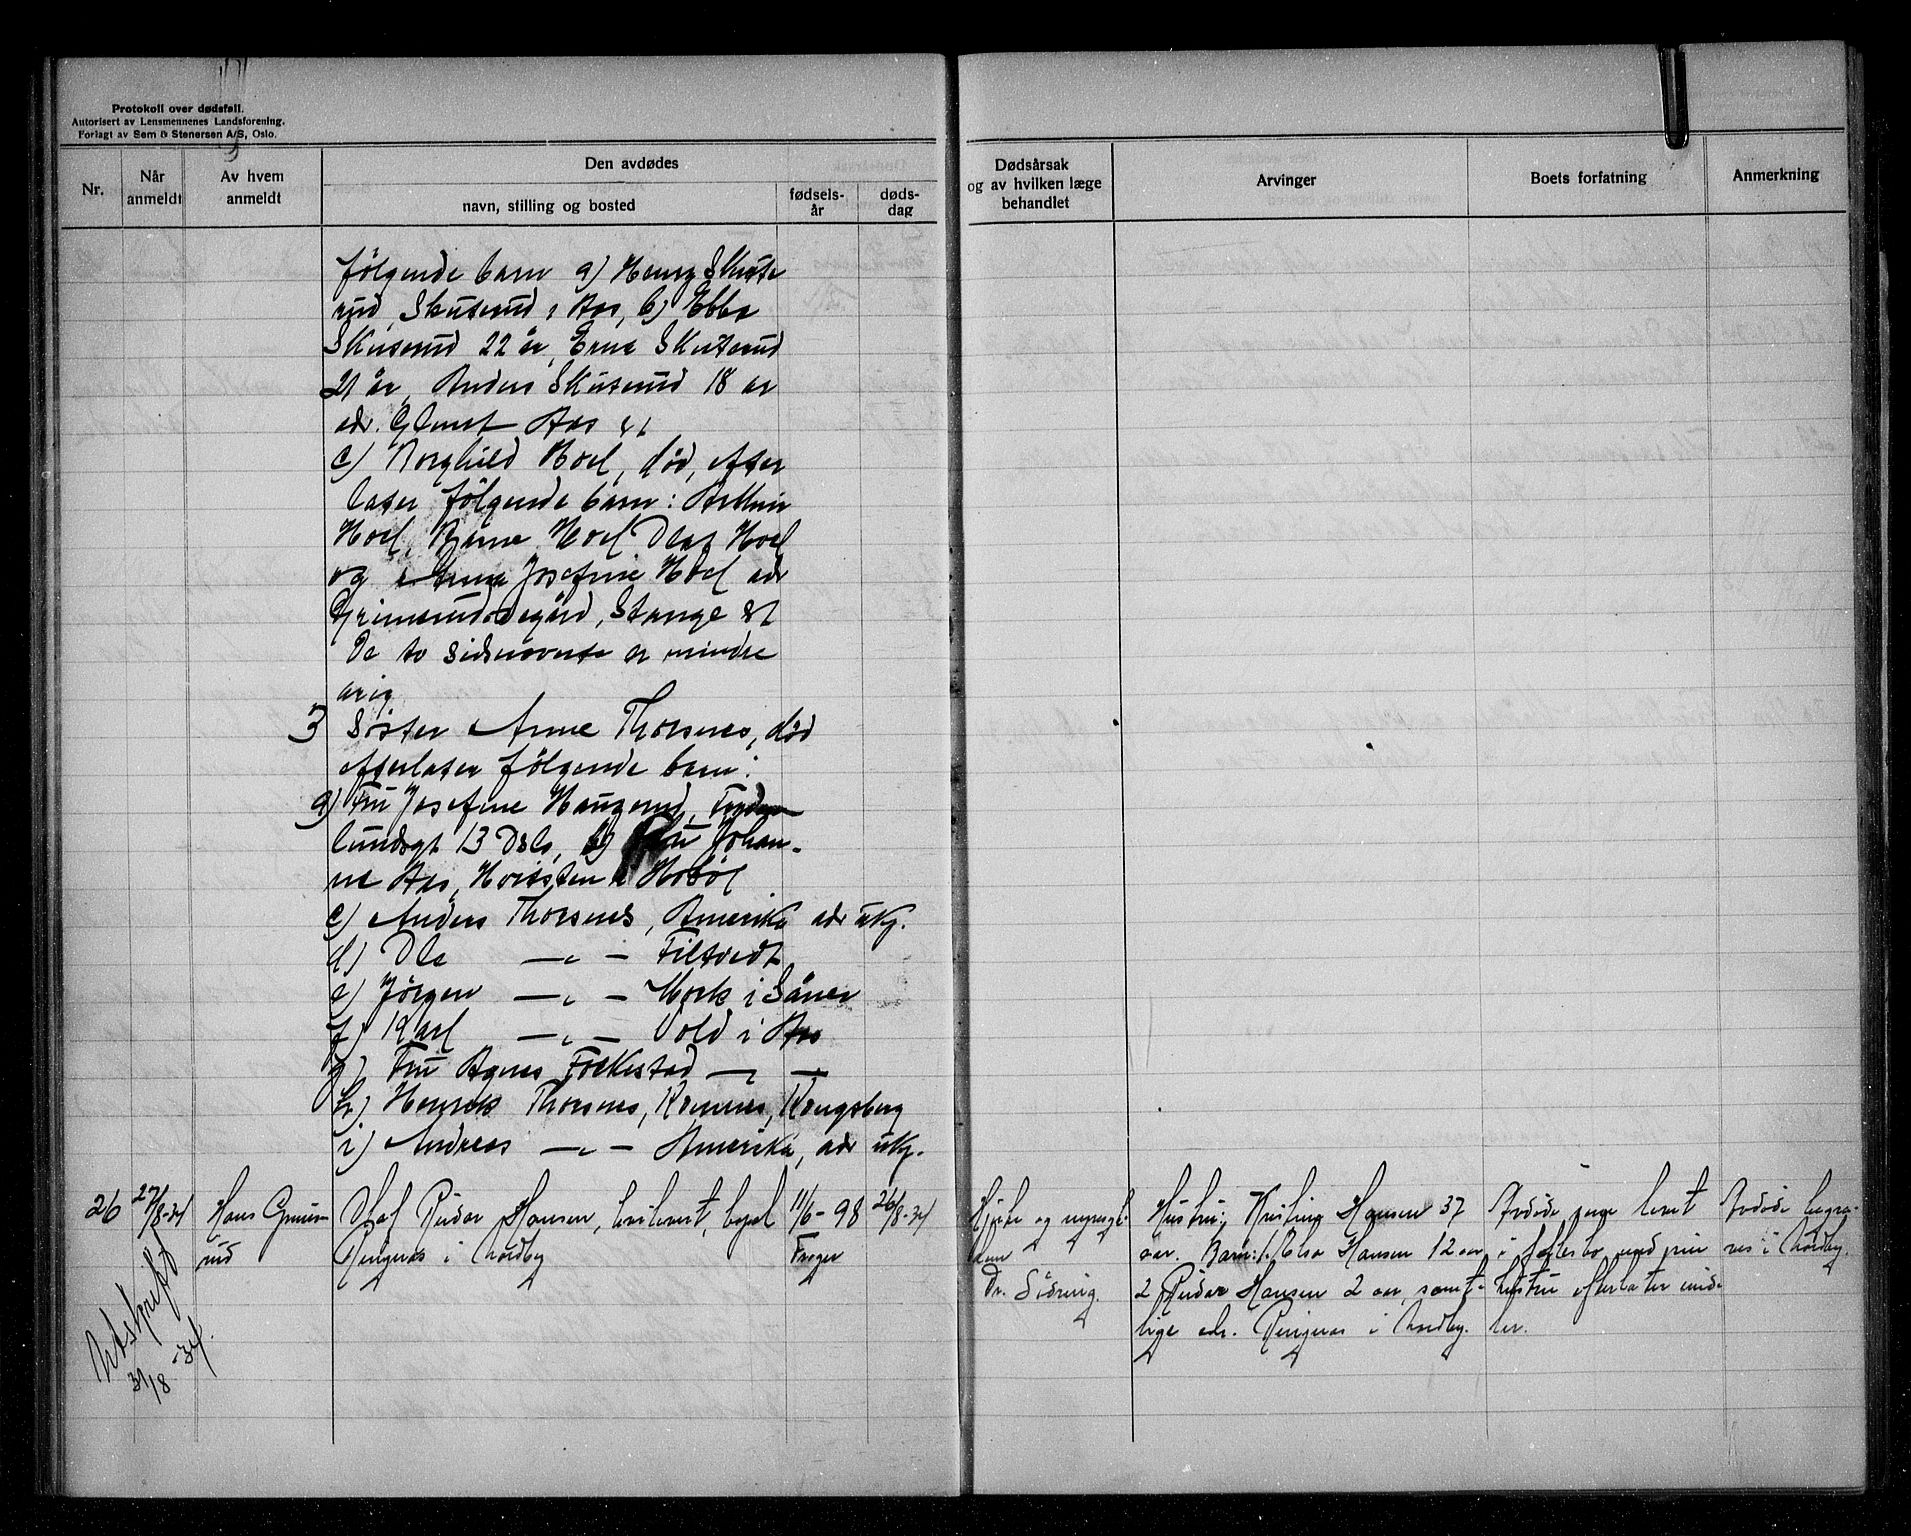 Protokoll over dødsfall.
Autorisert av Lensmennenes Landsforening.
Forlagt av Sem & Stenersen A/S, Oslo.
Nr.
Når anmeldt
Av hvem anmeldt
Den avdødes
navn, stilling og bosted
fødsels-
år
døds-
dag
Dødsårsak
og av hvilken læge
behandlet
Arvinger
Boets forfatning
Anmerkning
følgende barn a) Henry Skute
rud, Skuterud i Aas, b) Ebba
Skuterud 22 år, Erna Skuterud
21 år, Anders Skuterud 18 ar
adr. Aas st
c) Borghild Hoel, død, efter
later følgende barn: Arthur
Hoel, Bjarne Hoel Olaf Hoel
og Anna Josefine Hoel adr
Grimerudødegård, Stange st
De to sidsnevnte er mindre
arig
3 Søster Anne Thorsnes, død
efterlater følgende barn:
a) Fru Josefine Haugerud, Fryden
lundsgt 13 Oslo, b) Fru Johan-
ne Aas, Kvisten i Hobøl
c) Anders Thorsnes, Amerika adr ukj.
d) Ole —„— Filtvedt
e) Jørgen —„— Mork i Såner
f) Karl —„— Vold i Aas
g) Fru Agnes Folkestad —„—
h) Henrik Thorsnes, Komnes, Kongsberg
i) Andreas —„— Amerika, adr ukj.
26 27/8-34 Hans Grime- Olaf Reidar Hansen, hvilevert, bopæl 11/6-98 26/8-34
rud Ringnes i Nordby Frogn
Utskrift
31/8-34.
Hjerte og nyresyk-
dom
Dr. Sidring.
Hustru, Kristine Hansen 37
aar. Barn: 1. Elsa Hansen 12 aar
2 Reidar Hansen 2 aar, samt-
lige adr. Ringnes i Nordby.
Avdøde som levet
i felesbo med sin
hustru efterlater mid-
ler.
Avdøde begra-
ves i Nordby.